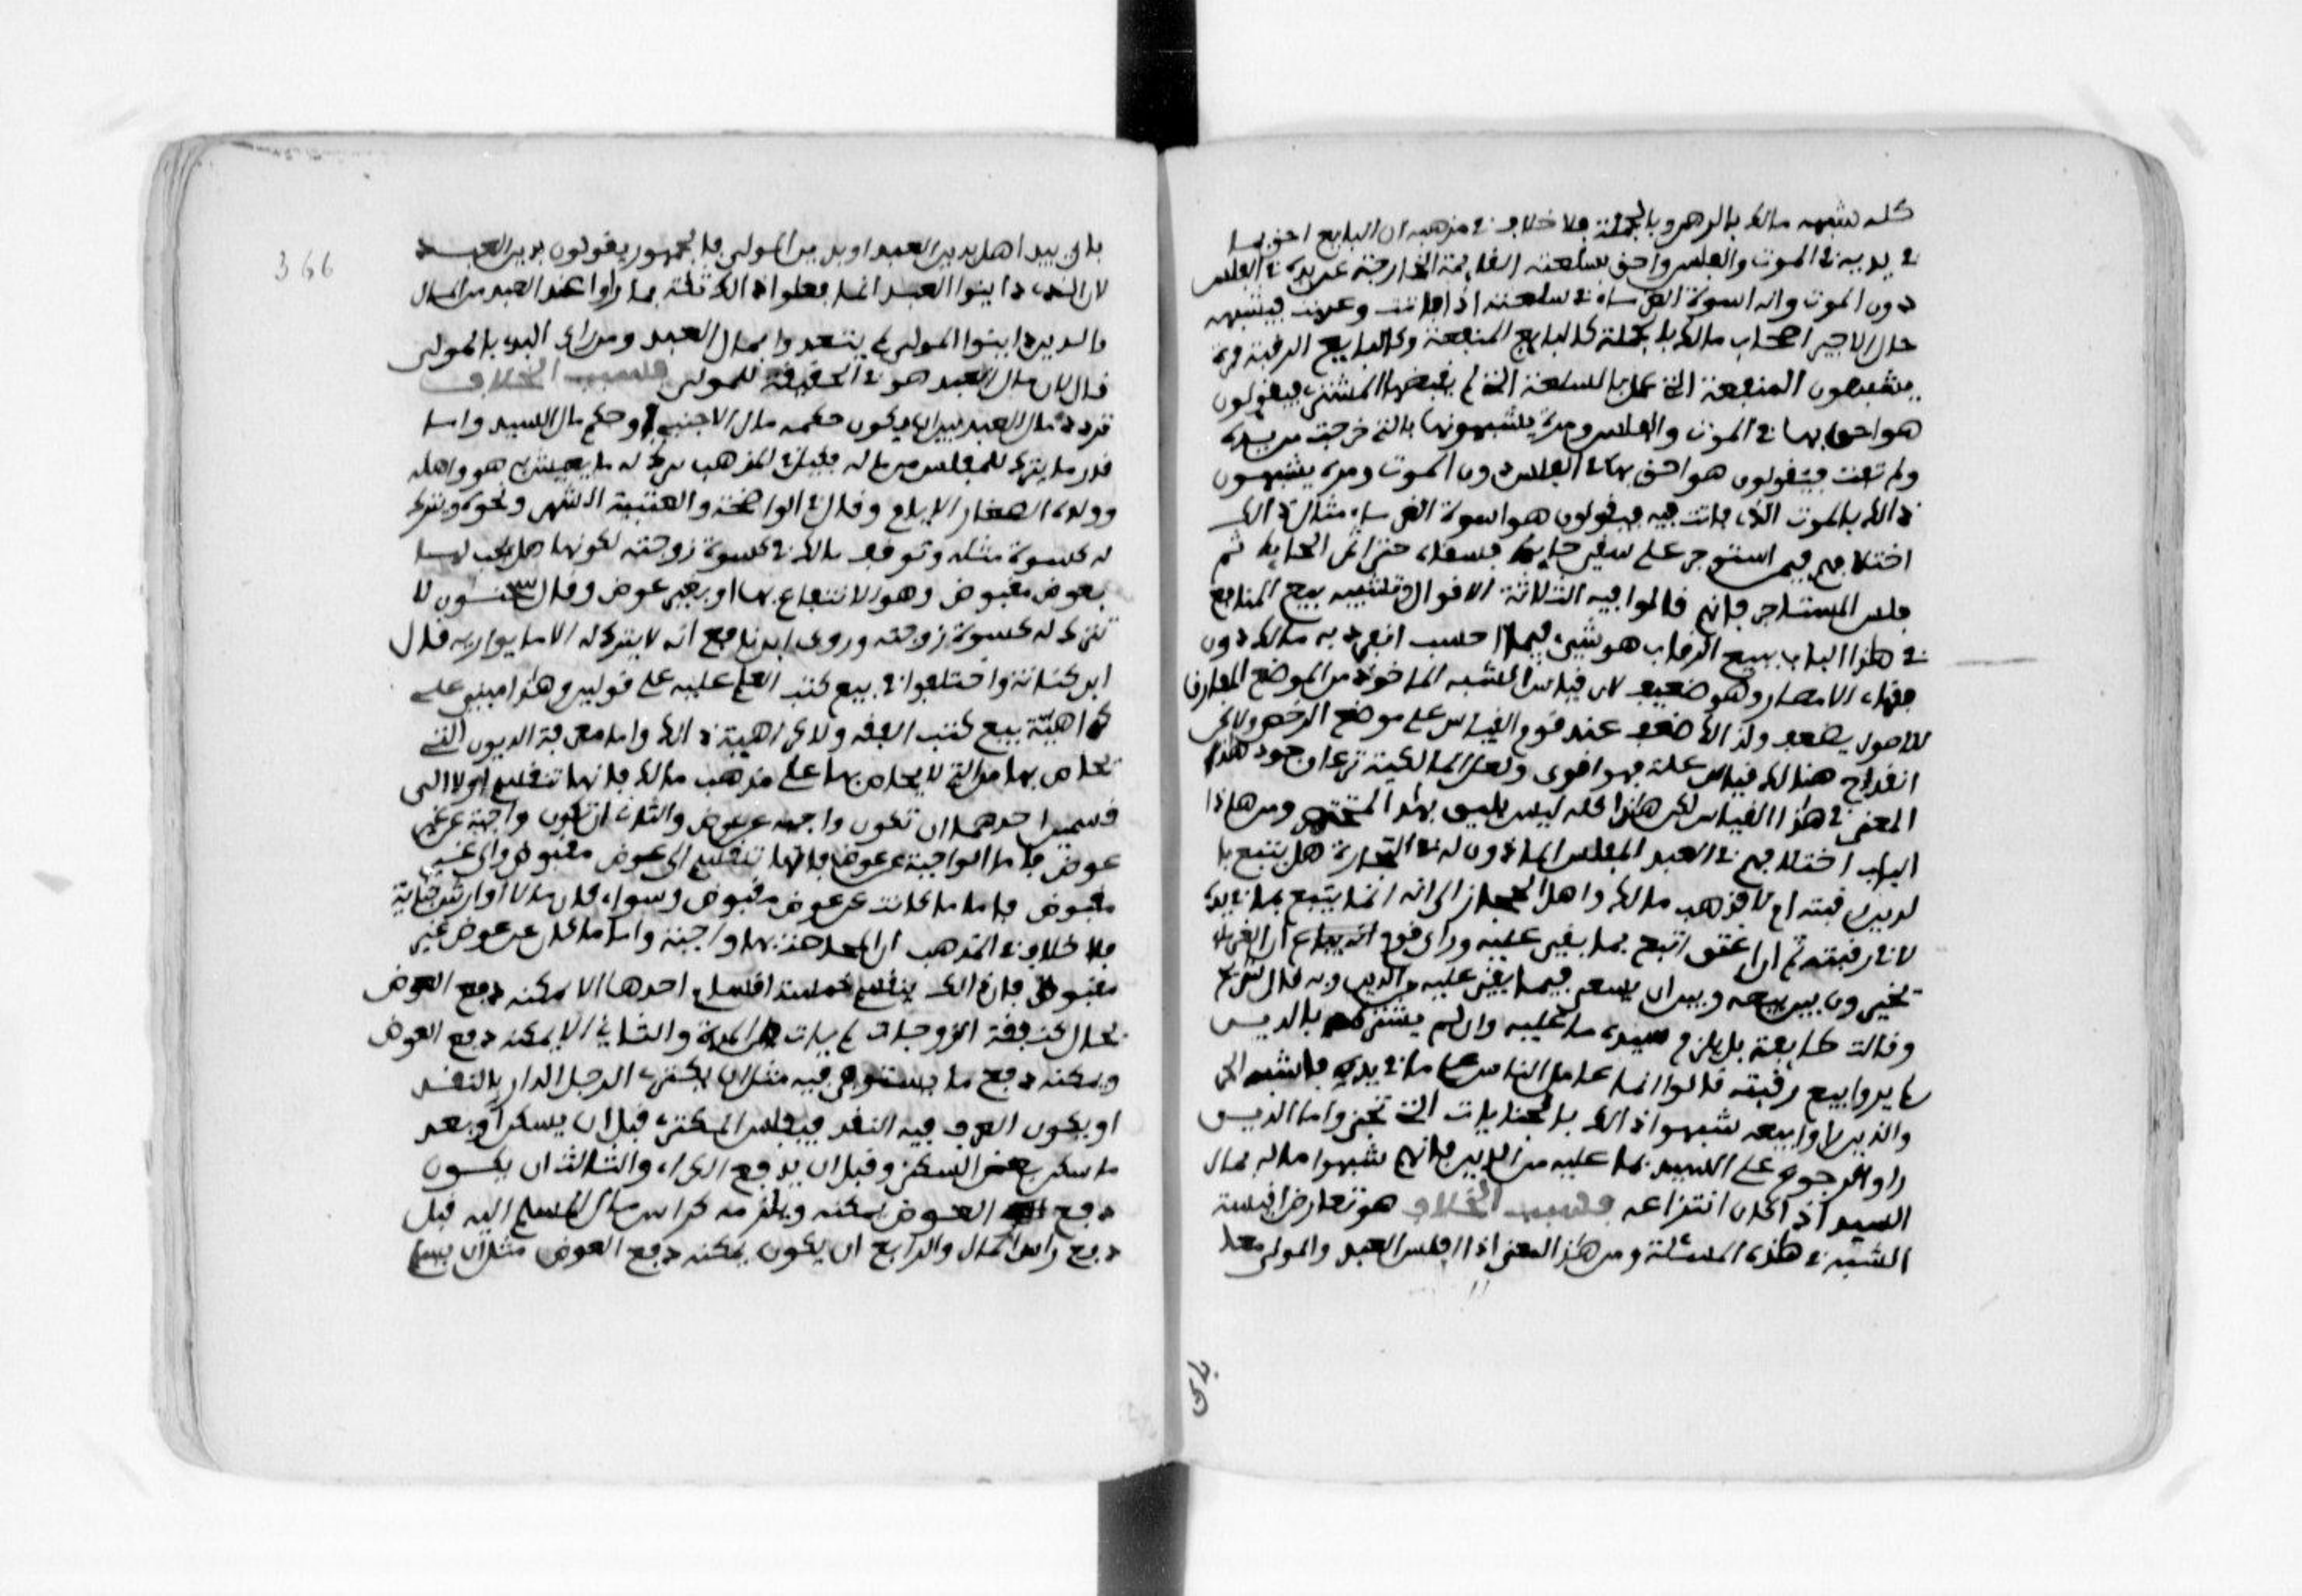 كله شبهه مالك بالرهن وبالجملة فلا خلاف في مذهبه ان البايع احق بما
في يديه في الموت والفلس واحق بسلعته القايمة الخارجة عن يده في الفلس
دون الموت وانه اسوة الغرماء في سلعته اذا فاتت وعزت فيشبه
حال الاجير اصحاب مالك بالجملة كالبايع المنفعة وكالبايع الرقبة فمرة
يشبهون المنفعة التي عمل بالسلعة التي لم يقبضها المشتري فيقولون
هو احق بها في الموت والفلس ومرة يشبهونها بالتي خرجت من يده
ولم تفت فيقولون هو احق بها في الفلس دون الموت ومرة يشبهون
ذالك بالموت الذي فاتت فيه فيقولون هو اسوة الغرماء مثال ذالك
اختلافهم فيمن استوجر على سقي حايط فسقاه حتى اثمر الحايط ثم
فلس المستاجر فانهم قالوا فيه الثلاثة الاقوال وتشبيه بيع المنافع
في هاذا الباب ببيع الرقاب هو شيء فيما احسب انفرد به مالك دون
فقهاء الامصار وهو ضعيف لان قياس الشبه الماخوذ من الموضع المفارق
للاصول يضعف ولذالك ضعف عند قوم القياس على موضع الرخص ولاكن
انقدح هنالك قياس علة فهو اقوى ولعل المالكية تدعي وجود هذا
المعنى في هاذا القياس لكن هاذا كله ليس يليق بهذا المختصر ومن هاذا
الباب اختلافهم في العبد المفلس الماذون له في التجارة هل يتبع با
لدين في رقبته ام لا فذهب مالك واهل الحجاز الى انه انما يتبع بما في يده
لا في رقبته ثم ان اعتق اتبع بما بقي عليه وراى قوم انه يباع وراى قوم ان الغرماء
يخيرون بين بيعه وبين ان يسعى فيما بقي عليه من الدين وبه قال شريح
وقالت طايفة بل يلزم سيده ما عليه وان لم يشترطه بالدين
لم يروا بيع رقبته قالوا انما عامل الناس على ما في يده فاشبه الحر
والذين راوا بيعه شبهوا ذالك بالجنايات التي تجنى واما الذين
راوا الرجوع على السيد بما عليه من الدين فانهم شبهوا ماله بمال
السيد اذ كان انتزاعه فسبب الخلاف هو تعارض اقيسة
الشبه في هاذه المسئلة ومن هاذا المعنى اذا افلس العبد والمولى معا
باي
366
باي يبدا هل بدين العبد او بدين المولى فالجمهور يقولون بدين العبد
لان الذين داينوا العبد انما فعلوا ذالك ثقة بما راوا عند العبد من المال
والذين داينوا المولى لم يعتدوا بمال العبد ومن راى البدء بالمولى
قال لان مال العبد هو في الحقيقة للمولى فسبب الخلاف
تردد مال العبد بين ان يكون حكمه مال الاجنبي او حكم مال السيد واما
قدر ما يترك للمفلس من ماله فقيل في المذهب يترك له ما يعيش به هو واهله
وولده الصغار الايام وقال في الواضحة والعتبية الشهر ونحوه ويترك
له كسوة مثله وتوقف مالك في كسوة زوجته لكونها هل تجب لها
بعوض مقبوض وهو الانتفاع بها او بغير عوض وقال سحنون لا
تترك له كسوة زوجته وروى ابن نافع انه لا يترك له الا ما يواريه قال
ابن كنانة واختلفوا في بيع كتب العلم عليه على قولين وهذا مبني على
كراهية بيع كتب الفقه ولا كراهية ذالك واما معرفة الديون التي
يحاص بها من التي لا يحاص بها على مذهب مالك فانها تنقسم اولا الى
قسمين احدهما ان تكون واجبة عن عوض والثاني ان تكون واجبة عن غير
عوض فاما الواجبة عن عوض فانها تنقسم الى عوض مقبوض والى غير
مقبوض فاما ما كانت عن عوض مقبوض وسواء كان مالا او ارش جناية
فلا خلاف في المذهب ان المحاصة بها واجبة واما ما كان عن عوض غير
مقبوض فان ذالك ينقسم خمسة اقسام احدها الا يمكنه دفع العوض
بحال كنفقة الزوجات لما يات من المدة والثاني الا يمكنه دفع العوض
ويمكنه دفع ما يستوفى فيه مثل ان يكتري الرجل الدار بالنقد
او يكون العرف فيه النقد فيفلس المكتري قبل ان يسكن او بعد
ما سكن بعض السكنى وقبل ان يدفع الكراء والثالث ان يكون
دفع العوض يمكنه ويلزمه كراس مال المسلم اليه قبل
دفع راس المال والرابع ان يكون يمكنه دفع العوض مثل ان يسلم